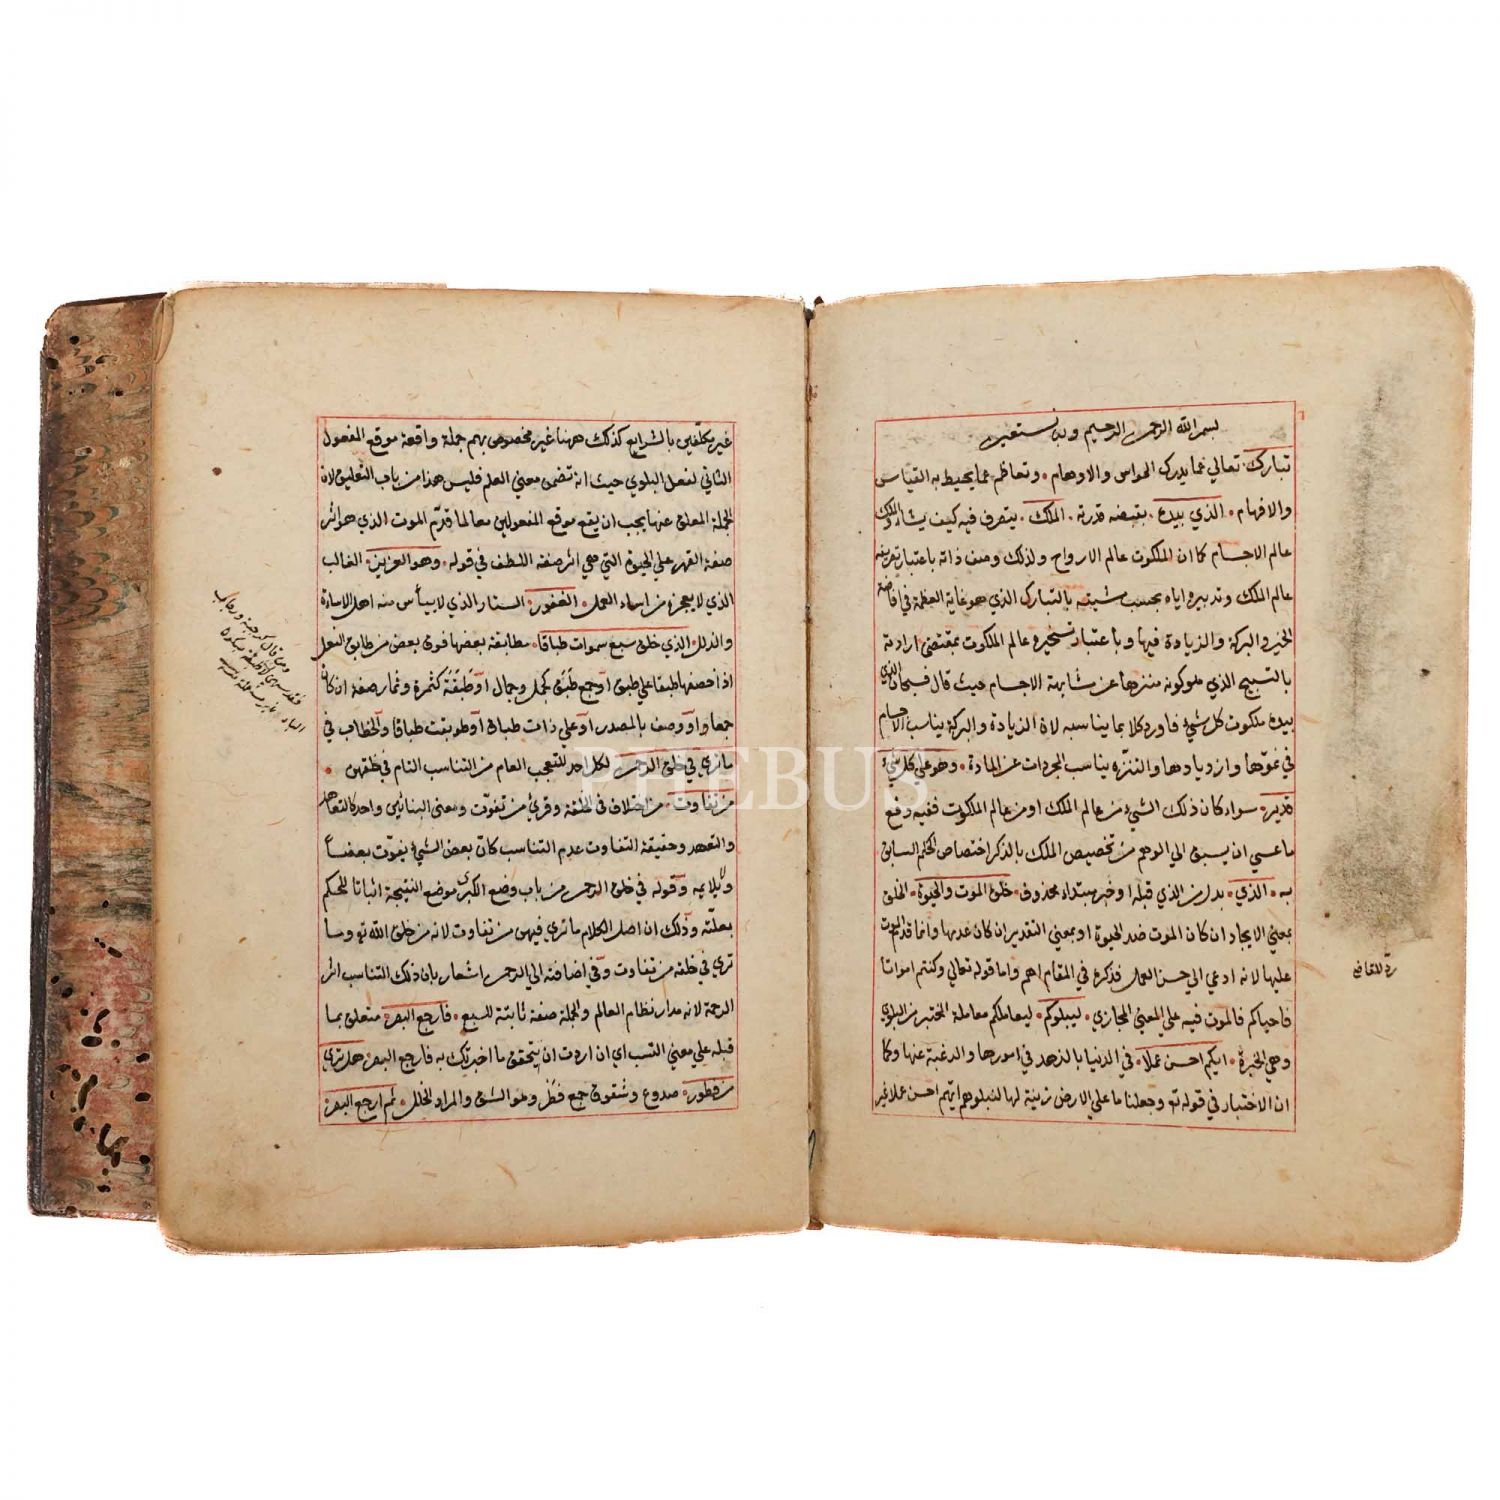 بسم الله الرحمن الرحيم وبه نستعين
تبارك تعالي عما يدرك الحواس والاوهام وتعاظم عما يحيط به القياس
والافهام الذي بيده بقبضه قدرته الملك يتصرف فيه كيف يشاء والملك
عالم الاجسام كما ان الملكوت عالم الارواح ولذلك وصف ذاته باعتبار تصريفه
عالم الملك وتدبيره اياه بحسب مشيته بالتبارك الذي هو غاية العظمة في افاضة
الخير والبركة والزيادة فيها وباعتبار تسخيره عالم الملكوت بمقتضي ارادته
بالتسبيح الذي هو كونه منزها عن مشابهة الاجسام حيث قال فسبحان الذي
بيده ملكوت كل شيء فاورد كلا بما يناسبه لان الزيادة والبركة يناسب الاجسام
في نموها وازديادها والتنزه يناسب المجردات عن المادة وهو علي كل شيء
قدير سواء كان ذلك الشيء من عالم الملك او من عالم الملكوت ففيه دفع
ما عسي ان يسبق الي الوهم من تخصيص الملك بالذكر اختصاص الحكم السابق
به الذي بدل من الذي قبله او خبر مبتداء محذوف خلق الموت والحيوة الخلق
بمعني الايجاد ان كان الموت ضد الحيوة او بمعني التقدير ان كان عدمها وانما قدم الموت
عليها لانه ادعي الي حسن العمل فذكره في المقام اهم واما قوله تعالي وكنتم امواتا
فاحياكم فالموت فيه علي المعني المجازي ليبلوكم ليعاملكم معاملة المختبر من البلوي
وهي الخبرة ايكم احسن عملا في الدنيا بالزهد في امورها والرغبة عنها وكما
ان الاختبار في قوله تع وجعلنا ما علي الارض زينة لها لنبلوهم ايهم احسن عملا غير
غير مكلفين بالشرايع كذلك ههنا غير مخصوص بهم جملة واقعة موقع المفعول
الثاني لفعل البلوي حيث انه تضمن معني العلم فليس هذا من باب التعليق لان
الجملة المعلق عنها يجب ان يقع موقع المفعولين معا لما قدم الموت الذي هو اثر
صفة القهر علي الحيوة التي هي اثر صفة اللطف في قوله وهو العزيز الغالب
الذي لا يعجزه من اساء العمل الغفور الستار الذي لا ييأس منه اهل الاساءة
والذلل الذي خلق سبع سموات طباقا مطابقة بعضها فوق بعض من طابق النعل
اذا خصفها طبقا علي طبق او جمع طبق كجمل وجمال او طبقة كثمرة وثمار صفة ان كان
جمعا او وصف بالمصدر او علي ذات طباق او طوبقت طباقا والخطاب في
ما تري في خلق الرحمن لكل احد للتعجب العام من التناسب التام في خلقهن
من تفاوت من اختلاف في الخلقة وقرئ من تفوت ومعني البنائين واحد كالتعاهد
والتعهد وحقيقة التفاوت عدم التناسب كان بعض الشيء يفوت بعضا
ولا يلايمه وقوله في خلق الرحمن من باب وضع الكبري موضع النتيجة اثباتا للحكم
بعلته وذلك ان اصل الكلام ما تري فيهن من تفاوت لانه من خلق الله تع وما
تري في خلقه من تفاوت وفي اضافته الي الرحمن اشعار بان ذلك التناسب اثر
الرحمة لانه مدار نظام العالم والجملة صفة ثابتة للسبع فارجع البصر متعلق بما
قبله علي معني التسبب اي ان اردت ان يتحقق ما اخبرتك به فارجع البصر هل تري
من فطور صدوع وشقوق جمع فطر وهو الشق والمراد الخلل ثم ارجع البصر
PHEBUS